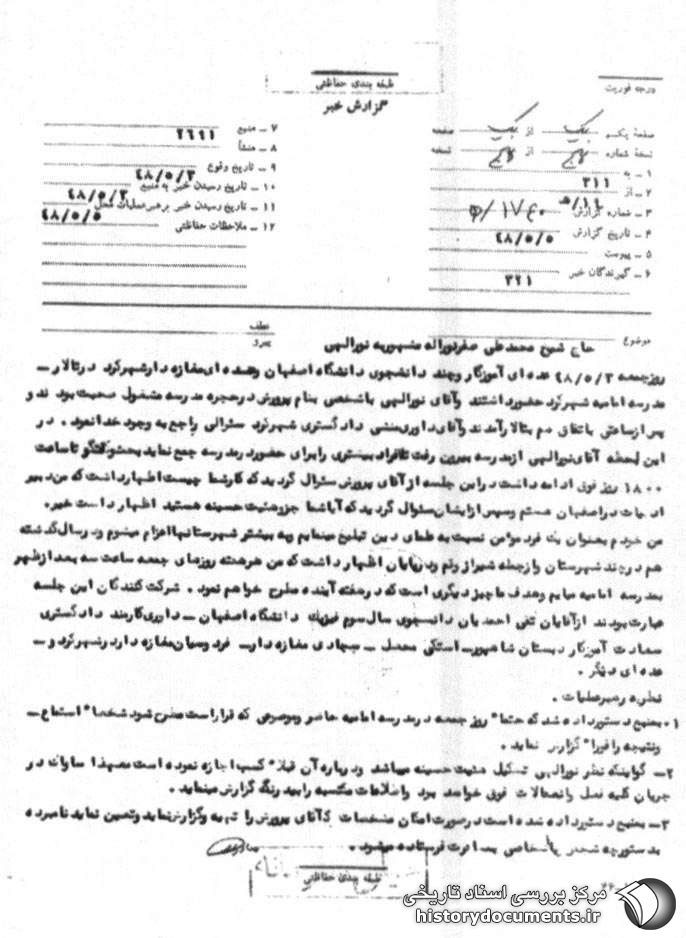 طبقه بندی حفاظتی
گزارش خبر
درجه فوریت
صفحه یکم یک از یک صفحه
نسخه شماره از نسخه
۱ ـ به ۳۱۱
۲ ـ از ۱۱/ه‍
۳ ـ شماره گزارش
۴ ـ تاریخ گزارش ۴۸/۵/۵
۵ ـ پیوست
۶ ـ گیرندگان خبر ۳۲۱
۷ ـ منبع ۲۶۹۱
۸ ـ منشأ
۹ ـ تاریخ وقوع ۴۸/۵/۳
۱۰ ـ تاریخ رسیدن خبر به منبع ۴۸/۵/۳
۱۱ ـ تاریخ رسیدن خبر برهبر عملیات محل ۴۸/۵/۵
۱۲ ـ ملاحظات حفاظتی
موضوع حاج شیخ محمدعلی صفرنوراله مشهور به نورالهی
عطف
پیرو
روز جمعه ۴۸/۵/۳ عده ای آموزگار و چند دانشجوی دانشگاه اصفهان وعده ای مغازه دار شهرکرد در تالار ـ
مدرسه امامیه شهرکرد حضور داشتند وآقای نورالهی با شخصی بنام پرورش در حجره مدرسه مشغول صحبت بودند و
پس از ساعتی باتفاق هم بتالار آمدند وآقای داوری منشی دادگستری شهرکرد سئوالی راجع به وجود خدا نمود . در
این لحظه آقای نورالهی از مدرسه بیرون رفت تا افراد بیشتری را برای حضور در مدرسه جمع نماید بحث و گفتگو تا ساعت
۱۸۰۰ روز فوق ادامه داشت در این جلسه از آقای پرورش سئوال گردید که کار شما چیست اظهار داشت که من دبیر
ادبیات در اصفهان هستم وسپس از ایشان سئوال گردید که آیا شما جزو هیئت حسینه هستید اظهار داشت خیر.
من خودم بعنوان یک فرد مؤمن نسبت به علمای دین تبلیغ مینمایم وبه بیشتر شهرستانها اعزام میشوم ودر سال گذشته
هم در چند شهرستان و از جمله شیراز رفتم ودر پایان اظهار داشت که من هر هفته روزهای جمعه ساعت سه بعد از ظهر
بمدرسه امامیه میایم وهدف ما چیز دیگری است که در هفته آینده مطرح خواهم نمود . شرکت کنندگان این جلسه
عبارت بودند از آقایان تقی احمدیان دانشجوی سال سوم فیزیک دانشگاه اصفهان ـ داوری کارمند دادگستری
سعادت آموزگار دبستان شاهپور ـ محصل ـ جهادی مغازه دار ـ فردوسیان مغازه دار در شهرکرد و ـ
عده ای دیگر .
نظریه رهبر عملیات .
۱ـ بمنبع دستور داده شد که حتما" روز جمعه در مدرسه امامیه حاضر وموضوعی که قرار است مطرح شود شخصا" استماع ـ
ونتیجه را فورا" گزارش نماید .
۲ـ گو اینکه نظر نورالهی تشکیل هیئت حسینه میباشد ودرباره آن قبلا" کسب اجازه نموده است معهذا ساواک در
جریان کلیه عمل وانفعالات فوق خواهد بود واطلاعات مکتسبه را بیدرنگ گزارش مینماید .
۳ـ بمنبع دستور داده شده است در صورت امکان مشخصات آقای پرورش را تهیه وگزارش نماید وتعیین نماید نامبرده
بدستور چه شخص یا اشخاصی بعمارت فرستاده میشود .
طبقه بندی حفاظتی
مرکز بررسی اسناد تاریخی
historydocuments.ir